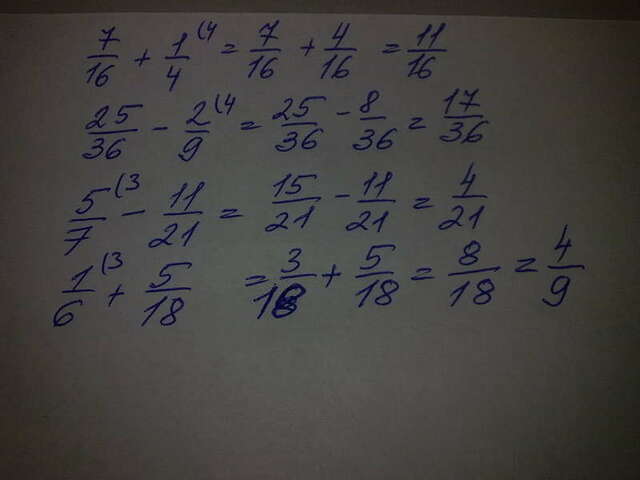 7/16 + 1/4 (4 = 7/16 + 4/16 = 11/16
25/36 - 2/9 (4 = 25/36 - 8/36 = 17/36
5/7 (3 - 11/21 = 15/21 - 11/21 = 4/21
1/6 (3 + 5/18 = 3/18 + 5/18 = 8/18 = 4/9